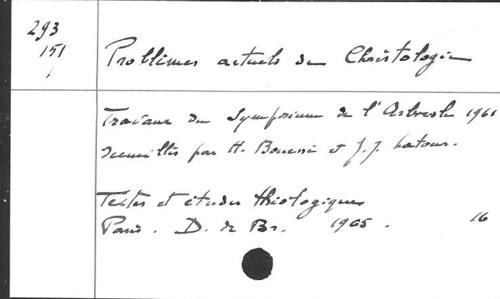 293
151
Problèmes actuels de Christologie
Travaux du Symposium de l'Arbresle 1961
recueillis par H. Bouëssé et J.J. Latour.
Textes et études théologiques
Paris. D. de Br. 1965. 16